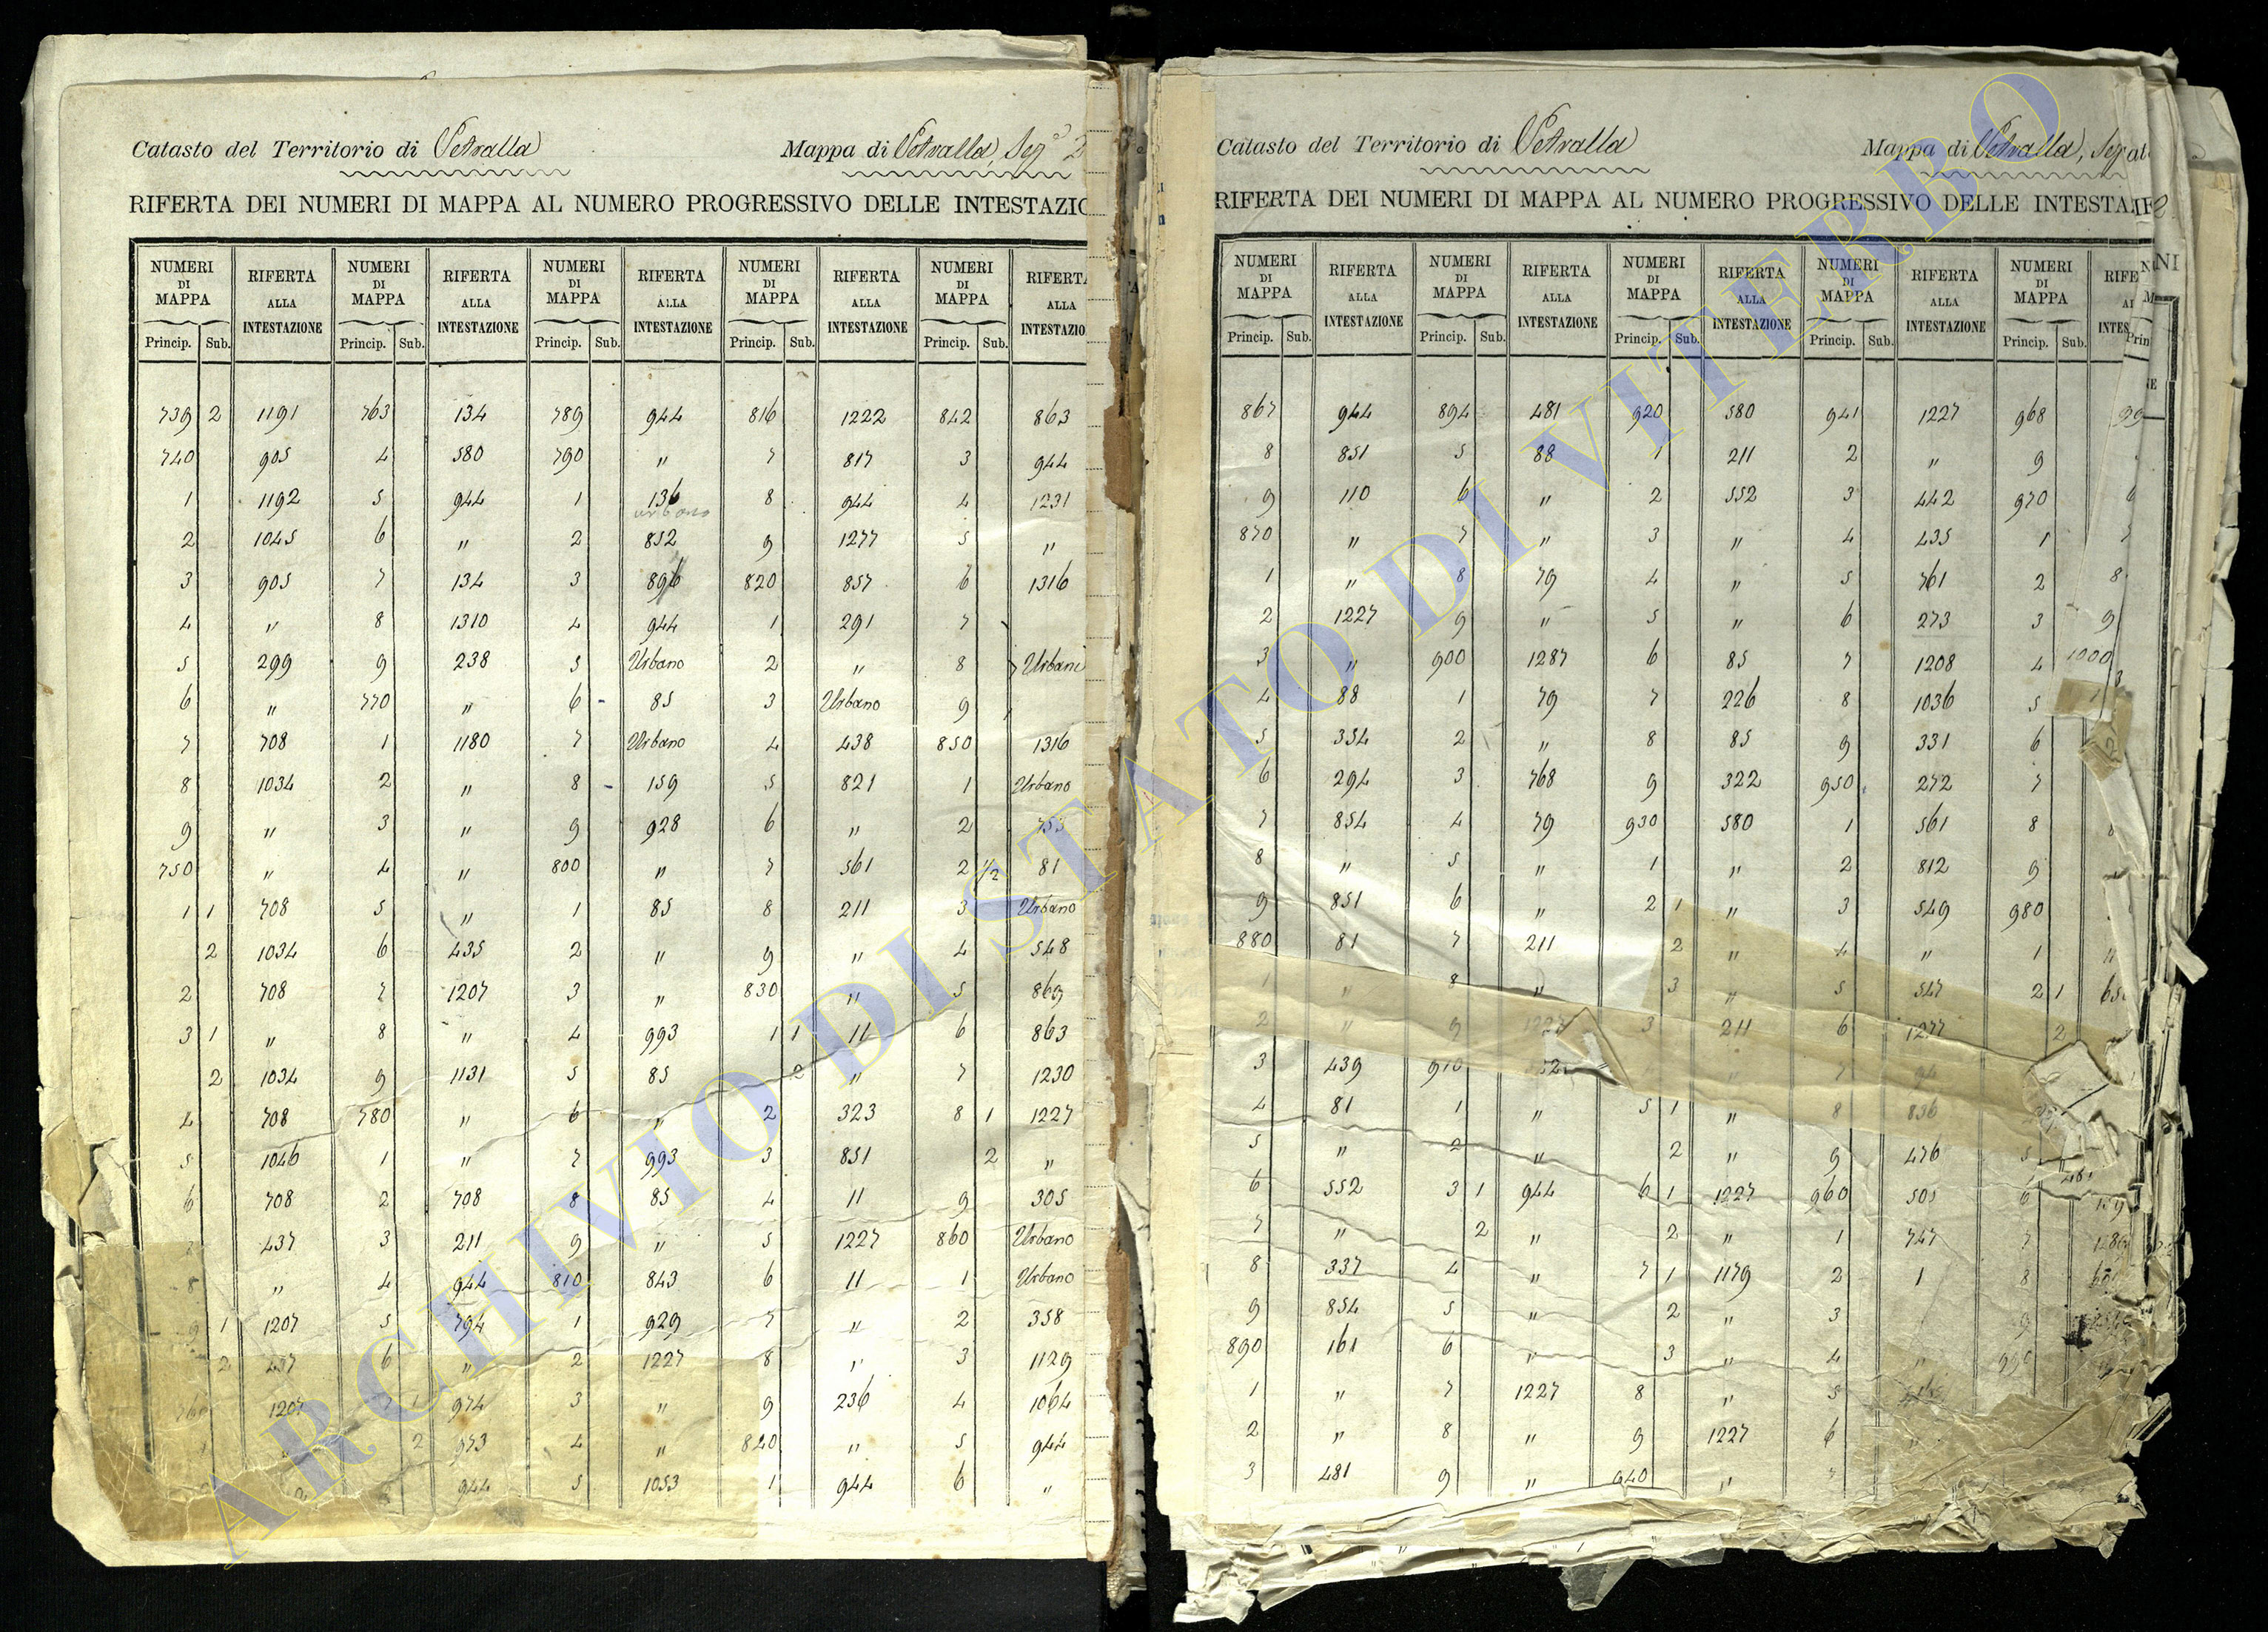 Catasto del Territorio di Vetralla Mappa di Vetralla, Sez.e 2
RIFERTA DEI NUMERI DI MAPPA AL NUMERO PROGRESSIVO DELLE INTESTAZIO
NUMERI DI MAPPA RIFERTA ALLA INTESTAZIONE NUMERI DI MAPPA RIFERTA ALLA INTESTAZIONE NUMERI DI MAPPA RIFERTA ALLA INTESTAZIONE NUMERI DI MAPPA RIFERTA ALLA INTESTAZIONE NUMERI DI MAPPA RIFERTA ALLA INTESTAZIO
Princip. Sub. Princip. Sub. Princip. Sub. Princip. Sub. Princip. Sub.
739 2 1191 763 134 789 944 816 1222 842 863
740 905 4 580 790 " 7 817 3 944
1 1192 5 944 1 136 8 944 4 1231
urbano
2 1045 6 " 2 852 9 1277 5 "
3 905 7 134 3 896 820 857 6 1316
4 " 8 1310 4 944 1 291 7
5 299 9 238 5 Urbano 2 " 8 Urbani
6 " 770 " 6 85 3 Urbano 9
7 708 1 1180 7 Urbano 4 438 850 1316
8 1034 2 " 8 159 5 821 1 Urbano
9 " 3 " 9 928 6 " 2 755
750 " 4 " 800 " 7 561 2 1/2 81
1 1 708 5 " 1 85 8 211 3 Urbano
2 1034 6 435 2 " 9 " 4 548
2 708 7 1207 3 " 830 " 5 869
3 1 " 8 " 4 993 1 1 11 6 863
2 1034 9 1131 5 85 2 " 7 1230
4 708 780 " 6 " 2 323 8 1 1227
5 1046 1 " 7 993 3 851 2 "
6 708 2 708 8 85 4 11 9 305
437 3 211 9 " 5 1227 860 Urbano
8 " 4 944 810 843 6 11 1 Urbano
9 1 1207 5 794 1 929 7 " 2 358
2 437 6 " 2 1227 8 " 3 1129
760 1207 7 1 974 3 " 9 236 4 1064
2 973 4 " 840 " 5 944
944 5 1053 1 944 6 "
Catasto del Territorio di Vetralla Mappa di Vetralla, Sez
RIFERTA DEI NUMERI DI MAPPA AL NUMERO PROGRESSIVO DELLE INTESTA
NUMERI DI MAPPA RIFERTA ALLA INTESTAZIONE NUMERI DI MAPPA RIFERTA ALLA INTESTAZIONE NUMERI DI MAPPA RIFERTA ALLA INTESTAZIONE NUMERI DI MAPPA RIFERTA ALLA INTESTAZIONE NUMERI DI MAPPA RIFE AL INTES
Princip. Sub. Princip. Sub. Princip. Sub. Princip. Sub. Princip. Sub.
867 944 894 481 920 580 941 1227 968
8 851 5 88 1 211 2 " 9
9 110 6 " 2 552 3 442 970
870 " 7 " 3 " 4 435 1
1 " 8 79 4 " 5 761 2 8
2 1227 9 " 5 " 6 273 3 9
3 " 900 1287 6 85 7 1208 4 1000
4 88 1 79 7 226 8 1036 5 1
5 354 2 " 8 85 9 331 6 2
6 294 3 768 9 322 950 272 7
7 854 4 79 930 580 1 561 8
8 " 5 " 1 " 2 812 9
9 851 6 " 2 1 " 3 549 980
880 81 7 211 2 " 4 " 1 "
1 " 8 " 3 " 5 547 2 1
2 " 9 1227 3 211 6 1277 2
3 439 910 7
4 81 1 " 5 1 " 8 836
5 " 2 " 2 " 9 476 5
6 552 3 1 944 6 1 1227 960 505 6
7 " 2 " 2 " 1 747 7
8 337 4 " 7 1 1179 2 1 8
9 854 5 " 2 " 3 9
890 161 6 " 3 " 4 " 990
1 " 7 1227 8 " 5
2 " 8 " 9 1227 6
3 481 9 " 940 "
ARCHIVIO DI STATO DI VITERBO